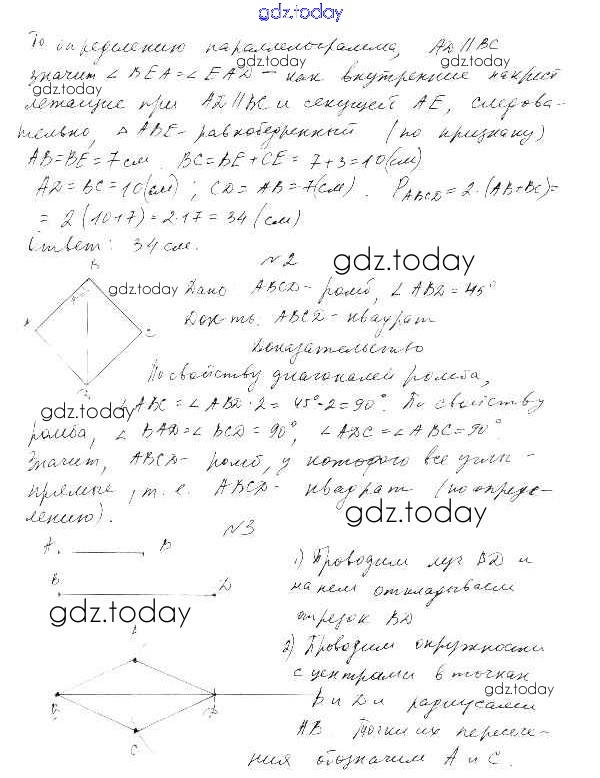 gdz.today
По определению параллелограмма, AD || BC
gdz.today gdz.today
значит ∠ BEA = ∠ EAD – как внутренние накрест
gdz.today
лежащие при AD || BC и секущей AE, следова-
тельно, △ ABE – равнобедренный (по признаку)
AB = BE = 7 см. BC = BE + CE = 7 + 3 = 10 (см)
AD = BC = 10 (см); CD = AB = 7 (см). P ABCD = 2·(AB+BC) =
= 2 (10+7) = 2·17 = 34 (см)
Ответ: 34 см.
№ 2
gdz.today
B
gdz.today
Дано ABCD – ромб, ∠ ABD = 45°
Док-ть. ABCD – квадрат
A C
Доказательство
По свойству диагоналей ромба,
D
gdz.today
∠ ABC = ∠ ABD · 2 = 45°·2 = 90°. По свойству
ромба, ∠ BAD = ∠ BCD = 90°, ∠ ADC = ∠ ABC = 90°.
Значит, ABCD – ромб, у которого все углы –
прямые, т. е. ABCD – квадрат (по опреде-
лению).
gdz.today
№ 3
A B
1) Проводим луч BD и
B D
на нем откладываем
gdz.today
отрезок BD
A
2) Проводим окружности
с центрами в точках
gdz.today
B D
B и D и радиусами
AB. Точки их пересече-
C
ния обозначим A и C.
gdz.today